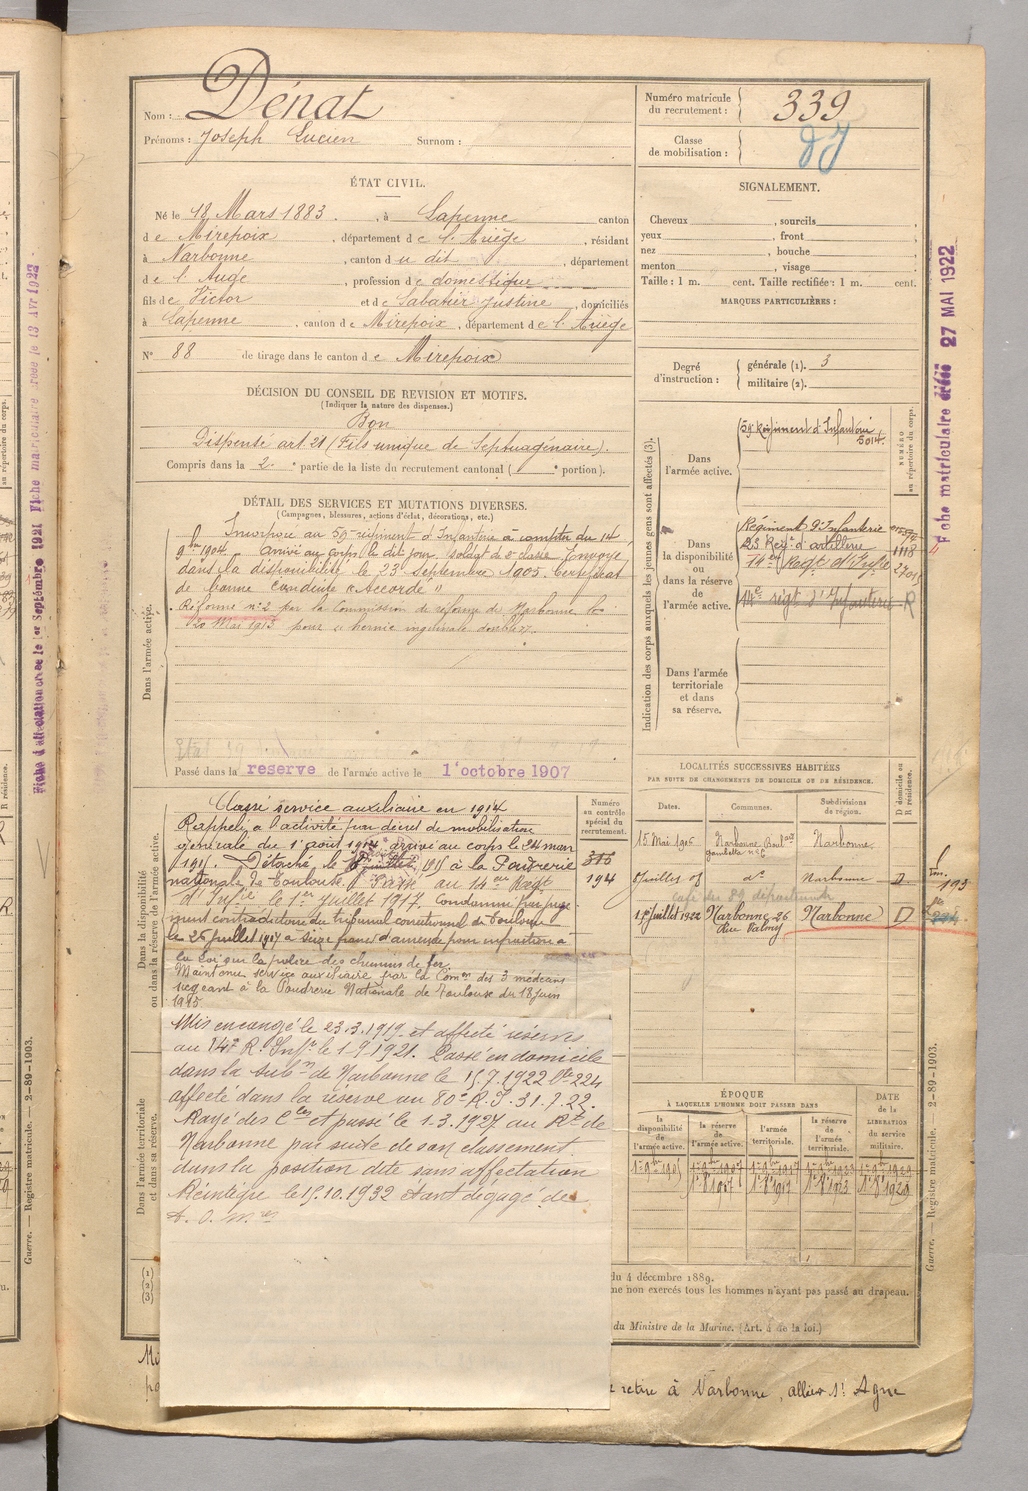 Nom : Dénat
Prénoms : Joseph Lucien Surnom :
Numéro matricule du recrutement : 339
Classe de mobilisation :
ÉTAT CIVIL.
Né le 18 Mars 1883. , à Lapenne canton
de Mirepoix , département de l'Ariège , résidant
à Narbonne , canton du dit , département
de l'Aude , profession de domestique
fils de Victor et de Sabatier Justine , domiciliés
à Lapenne , canton de Mirepoix , département de l'Ariège
N° 88 de tirage dans le canton de Mirepoix
DÉCISION DU CONSEIL DE REVISION ET MOTIFS.
(Indiquer la nature des dispenses.)
Bon
Dispensé art. 21 (Fils unique de Septuagénaire).
Compris dans la 2e partie de la liste du recrutement cantonal ( e portion).
DÉTAIL DES SERVICES ET MUTATIONS DIVERSES.
(Campagnes, blessures, actions d'éclat, décorations, etc.)
Dans l'armée active.
Incorporé au 59e régiment d'Infanterie à compter du 14
9bre 1904. Arrivé au corps le dit jour soldat de 2e classe. Envoyé
dans la disponibilité le 23 Septembre 1905. Certificat
de bonne conduite "Accordé"
Réformé n° 2 par la Commission de réforme de Narbonne le
20 Mai 1913 pour "hernie inguinale double".
Passé dans la reserve de l'armée active le 1er octobre 1907
Dans la disponibilité ou dans la réserve de l'armée active.
Classé service auxiliaire en 1914
Rappelé à l'activité par décret de mobilisation
générale du 1er août 1914 arrivé au corps le 24 mars
1915. Détaché le 1915 à la Poudrerie
nationale de Toulouse. Passé au 14e Régt
d'Infie le 1er Juillet 1917. Condamné par juge
ment contradictoire du tribunal correctionnel de Toulouse
le 26 juillet 1917 à seize francs d'amende pour infraction à
la loi sur la police des chemins de fer
Maintenu service auxiliaire par la Comon des 3 médecins
siégeant à la Poudrerie Nationale de Toulouse du 18 juin
1915
Numéro au contrôle spécial du recrutement.
315
194
Dans l'armée territoriale et dans sa réserve.
Mis en congé le 23.3.1919 et affecté réserves
au 14e R. Infie le 1-9-1921. Passé en domicile
dans la subon de Narbonne le 15.7.1922 Vte 224
affecté dans la réserve au 80e R.I. 31.7.22.
Rayé des Cles et passé le 1.3.1927 au Rt de
Narbonne par suite de son classement
dans la position dite sans affectation
Réintégré le 15.10.1932 étant dégagé des
(1)
(2)
(3)
SIGNALEMENT.
Cheveux , sourcils ,
yeux , front ,
nez , bouche ,
menton , visage .
Taille : 1 m. cent. Taille rectifiée : 1 m. cent.
MARQUES PARTICULIÈRES :
Degré d'instruction : générale (1). 3
militaire (2).
Indication des corps auxquels les jeunes gens sont affectés (3).
NUMÉRO au répertoire du corps.
Dans l'armée active.
59e Régiment d'Infanterie
5014
Dans la disponibilité ou dans la réserve de l'armée active.
Régiment d'Infanterie
23 Regt d'artillerie 1118
14e Regt d'Infie
14e regt d'Infanterie R
Dans l'armée territoriale et dans sa réserve.
LOCALITÉS SUCCESSIVES HABITÉES
PAR SUITE DE CHANGEMENTS DE DOMICILE OU DE RÉSIDENCE.
Dates. Communes. Subdivisions de région. D domicile ou R résidence.
15 Mai 1906 Narbonne Boulard Gambetta n° 2 Narbonne
8 juillet 08 do Narbonne D
15 juillet 1922 Narbonne 26 Rue Valmy Narbonne D
193
ÉPOQUE
À LAQUELLE L'HOMME DOIT PASSER DANS
la disponibilité de l'armée active. la réserve de l'armée active. l'armée territoriale. la réserve de l'armée territoriale. DATE de la LIBÉRATION du service militaire.
du 4 décembre 1889.
me non exercés tous les hommes n'ayant pas passé au drapeau.
du Ministre de la Marine. (Art. 4 de la loi.)
retire à Narbonne, allier St Agne
Fiche matricule 27 MAI 1922
Guerre. — Registre matricule. — 2-89-1903.
Guerre. — Registre matricule. — 2-89-1903.